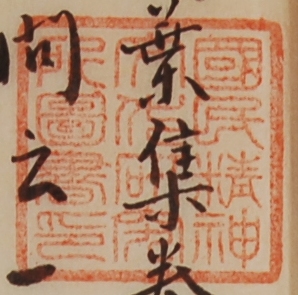 葉集巻
問云一
國民精神
文化研究
所圖書印